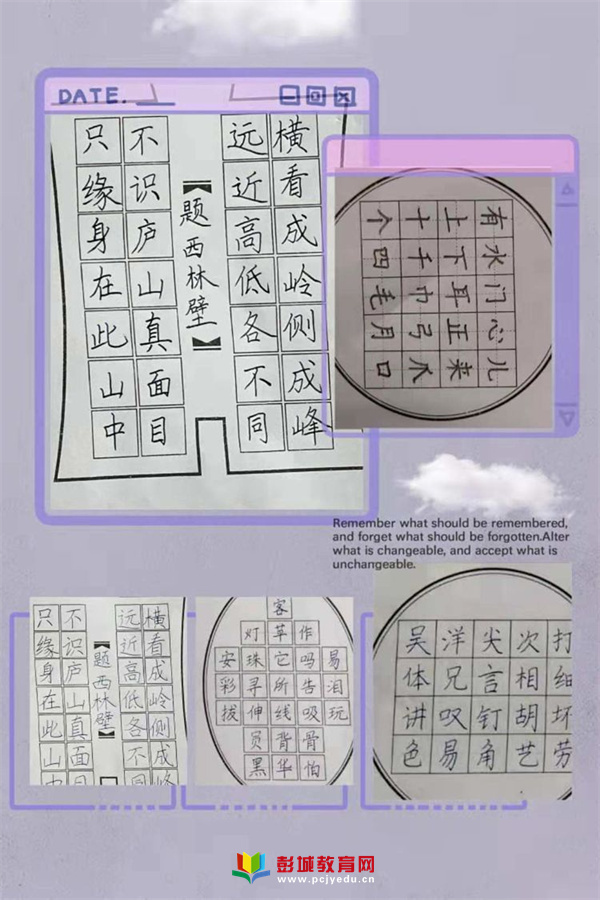 DATE.
横看成岭侧成峰
远近高低各不同
【题西林壁】
不识庐山真面目
只缘身在此山中
有水门心儿
上下耳正来
十千巾弓爪
个四毛月口
Remember what should be remembered,
and forget what should be forgotten.Alter
what is changeable, and accept what is
unchangeable.
横看成岭侧成峰
远近高低各不同
【题西林壁】
不识庐山真面目
只缘身在此山中
客
灯草作
安珠它吗易
彩寻所告泪
拔伸线吸玩
员背骨
黑华怕
吴洋尖次打
体兄言相细
讲叹钉胡坏
色易角艺劳
彭城教育网
www.pcjyedu.cn